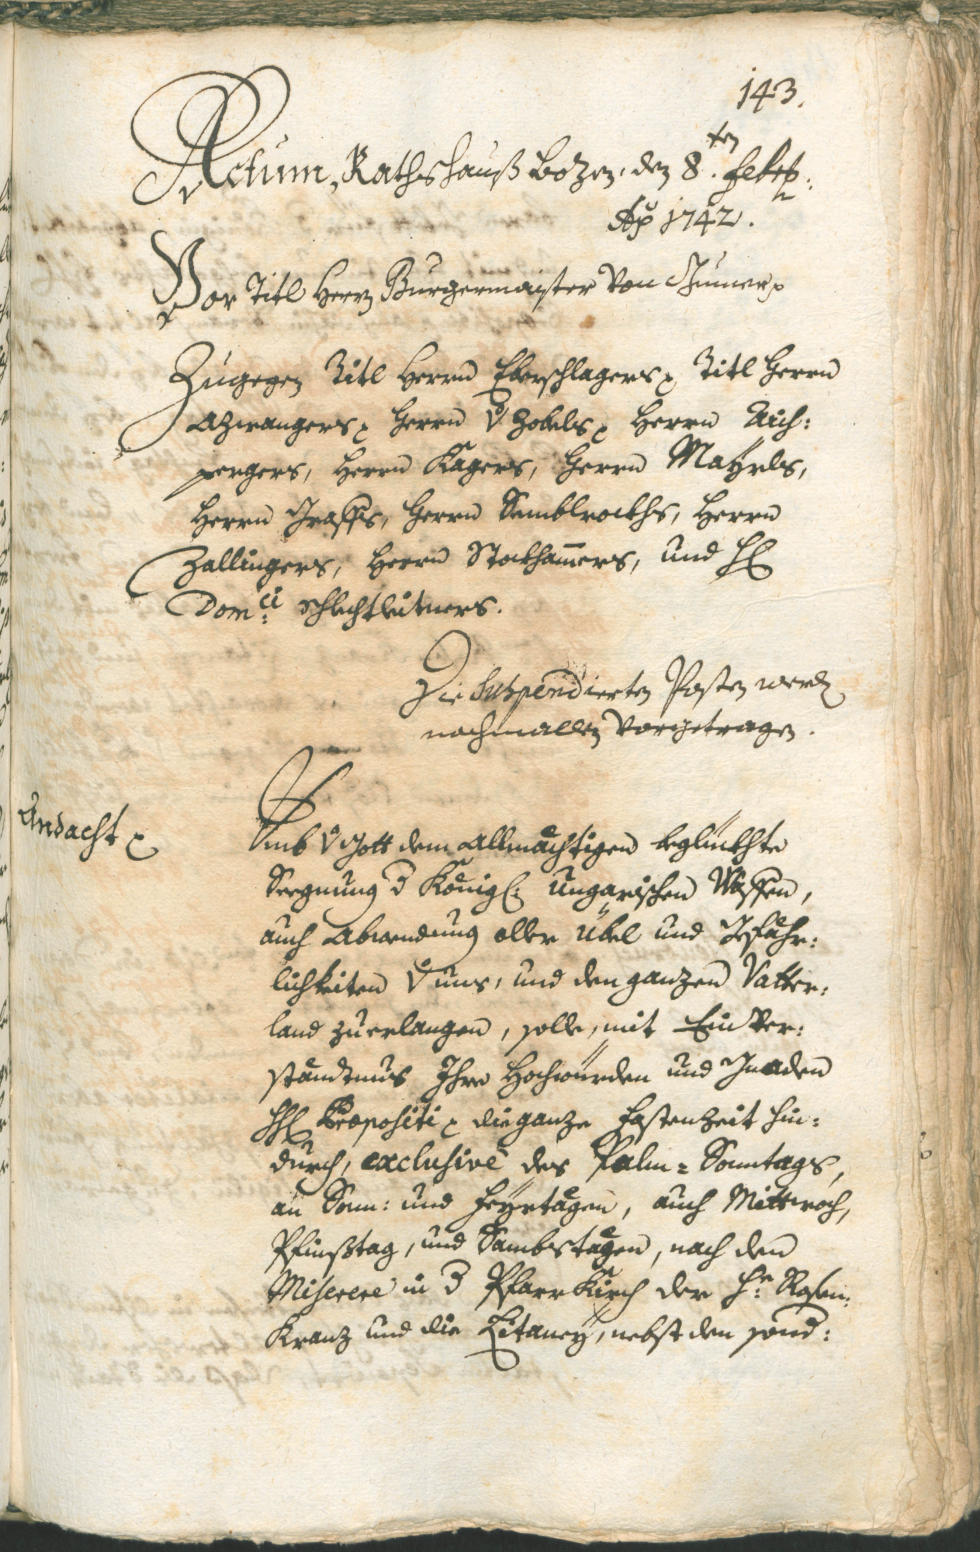 143.
Actum, Rathshauß Bozen, den 8.ten Feb:
Ao 1742.
Vor Titl Herrn Burgermaister von
Zugegen Titl Herrn Eberschlagers, Titl Herrn
Azwangers, Herrn v Zobels, Herrn Aich:
pergers, Herrn Kagers, Herrn Mayrls,
Herrn Graffs, Herrn Semblrockhs, Herrn
Zallingers, Herrn Stockhamers, und H
Domci Schlechtleitners.
Die Suspendierten Posten werden
nochmallen vorgetragen.
Andacht
Umb v Gott dem Allmächtigen beglückhte
Seegnung d Königl: Ungarischen Waffen,
auch Abwendung aller übel und Gefähr:
lichkeiten v uns, und den ganzen Vatter:
land zuerlangen, solle, mit Einver:
ständtnus Ihro Hochwürden und Gnaden
H Praepositi die ganze Fastenzeit hin:
durch, exclusivè des Palm=Sonntags,
an Sonn: und Feyrtägen, auch Mittwoch,
Pfinßtag, und Sambstägen, nach dem
Miserere in d PfarrKirch der H: Rosen:
Kranz und die Litaney, nebst den sond: